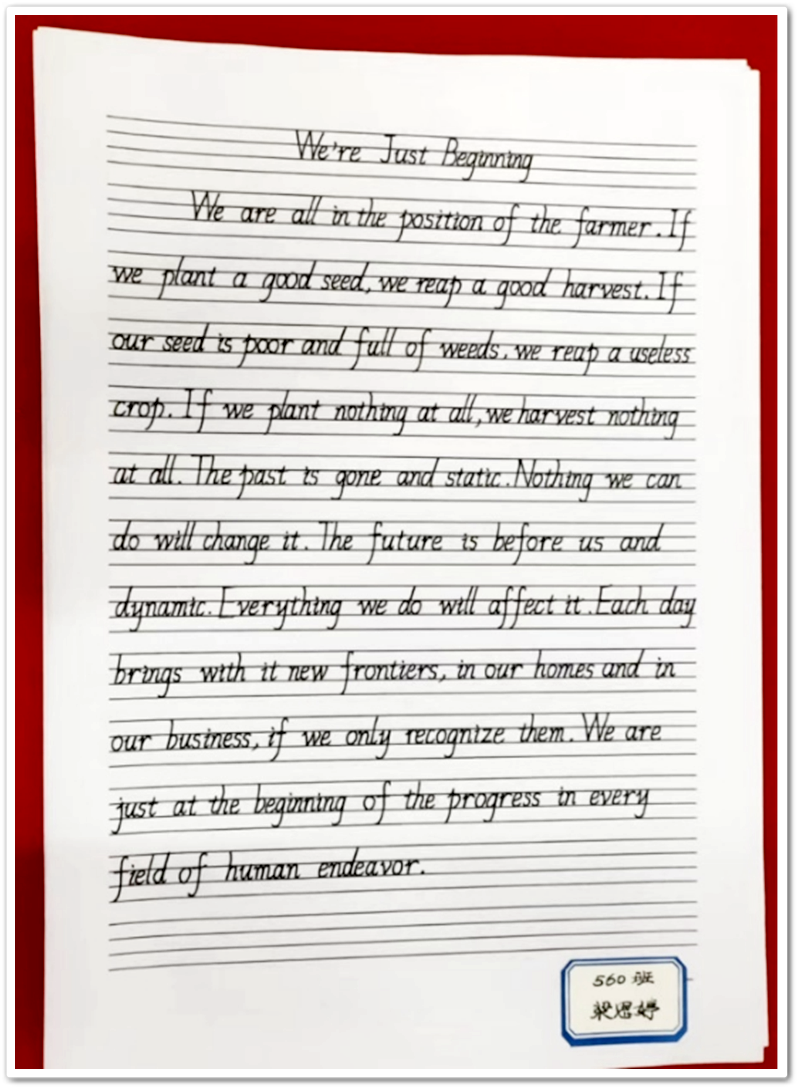 We're Just Beginning
We are all in the position of the farmer. If
we plant a good seed, we reap a good harvest. If
our seed is poor and full of weeds, we reap a useless
crop. If we plant nothing at all, we harvest nothing
at all. The past is gone and static. Nothing we can
do will change it. The future is before us and
dynamic. Everything we do will affect it. Each day
brings with it new frontiers, in our homes and in
our business, if we only recognize them. We are
just at the beginning of the progress in every
field of human endeavor.
560班
梁思婷